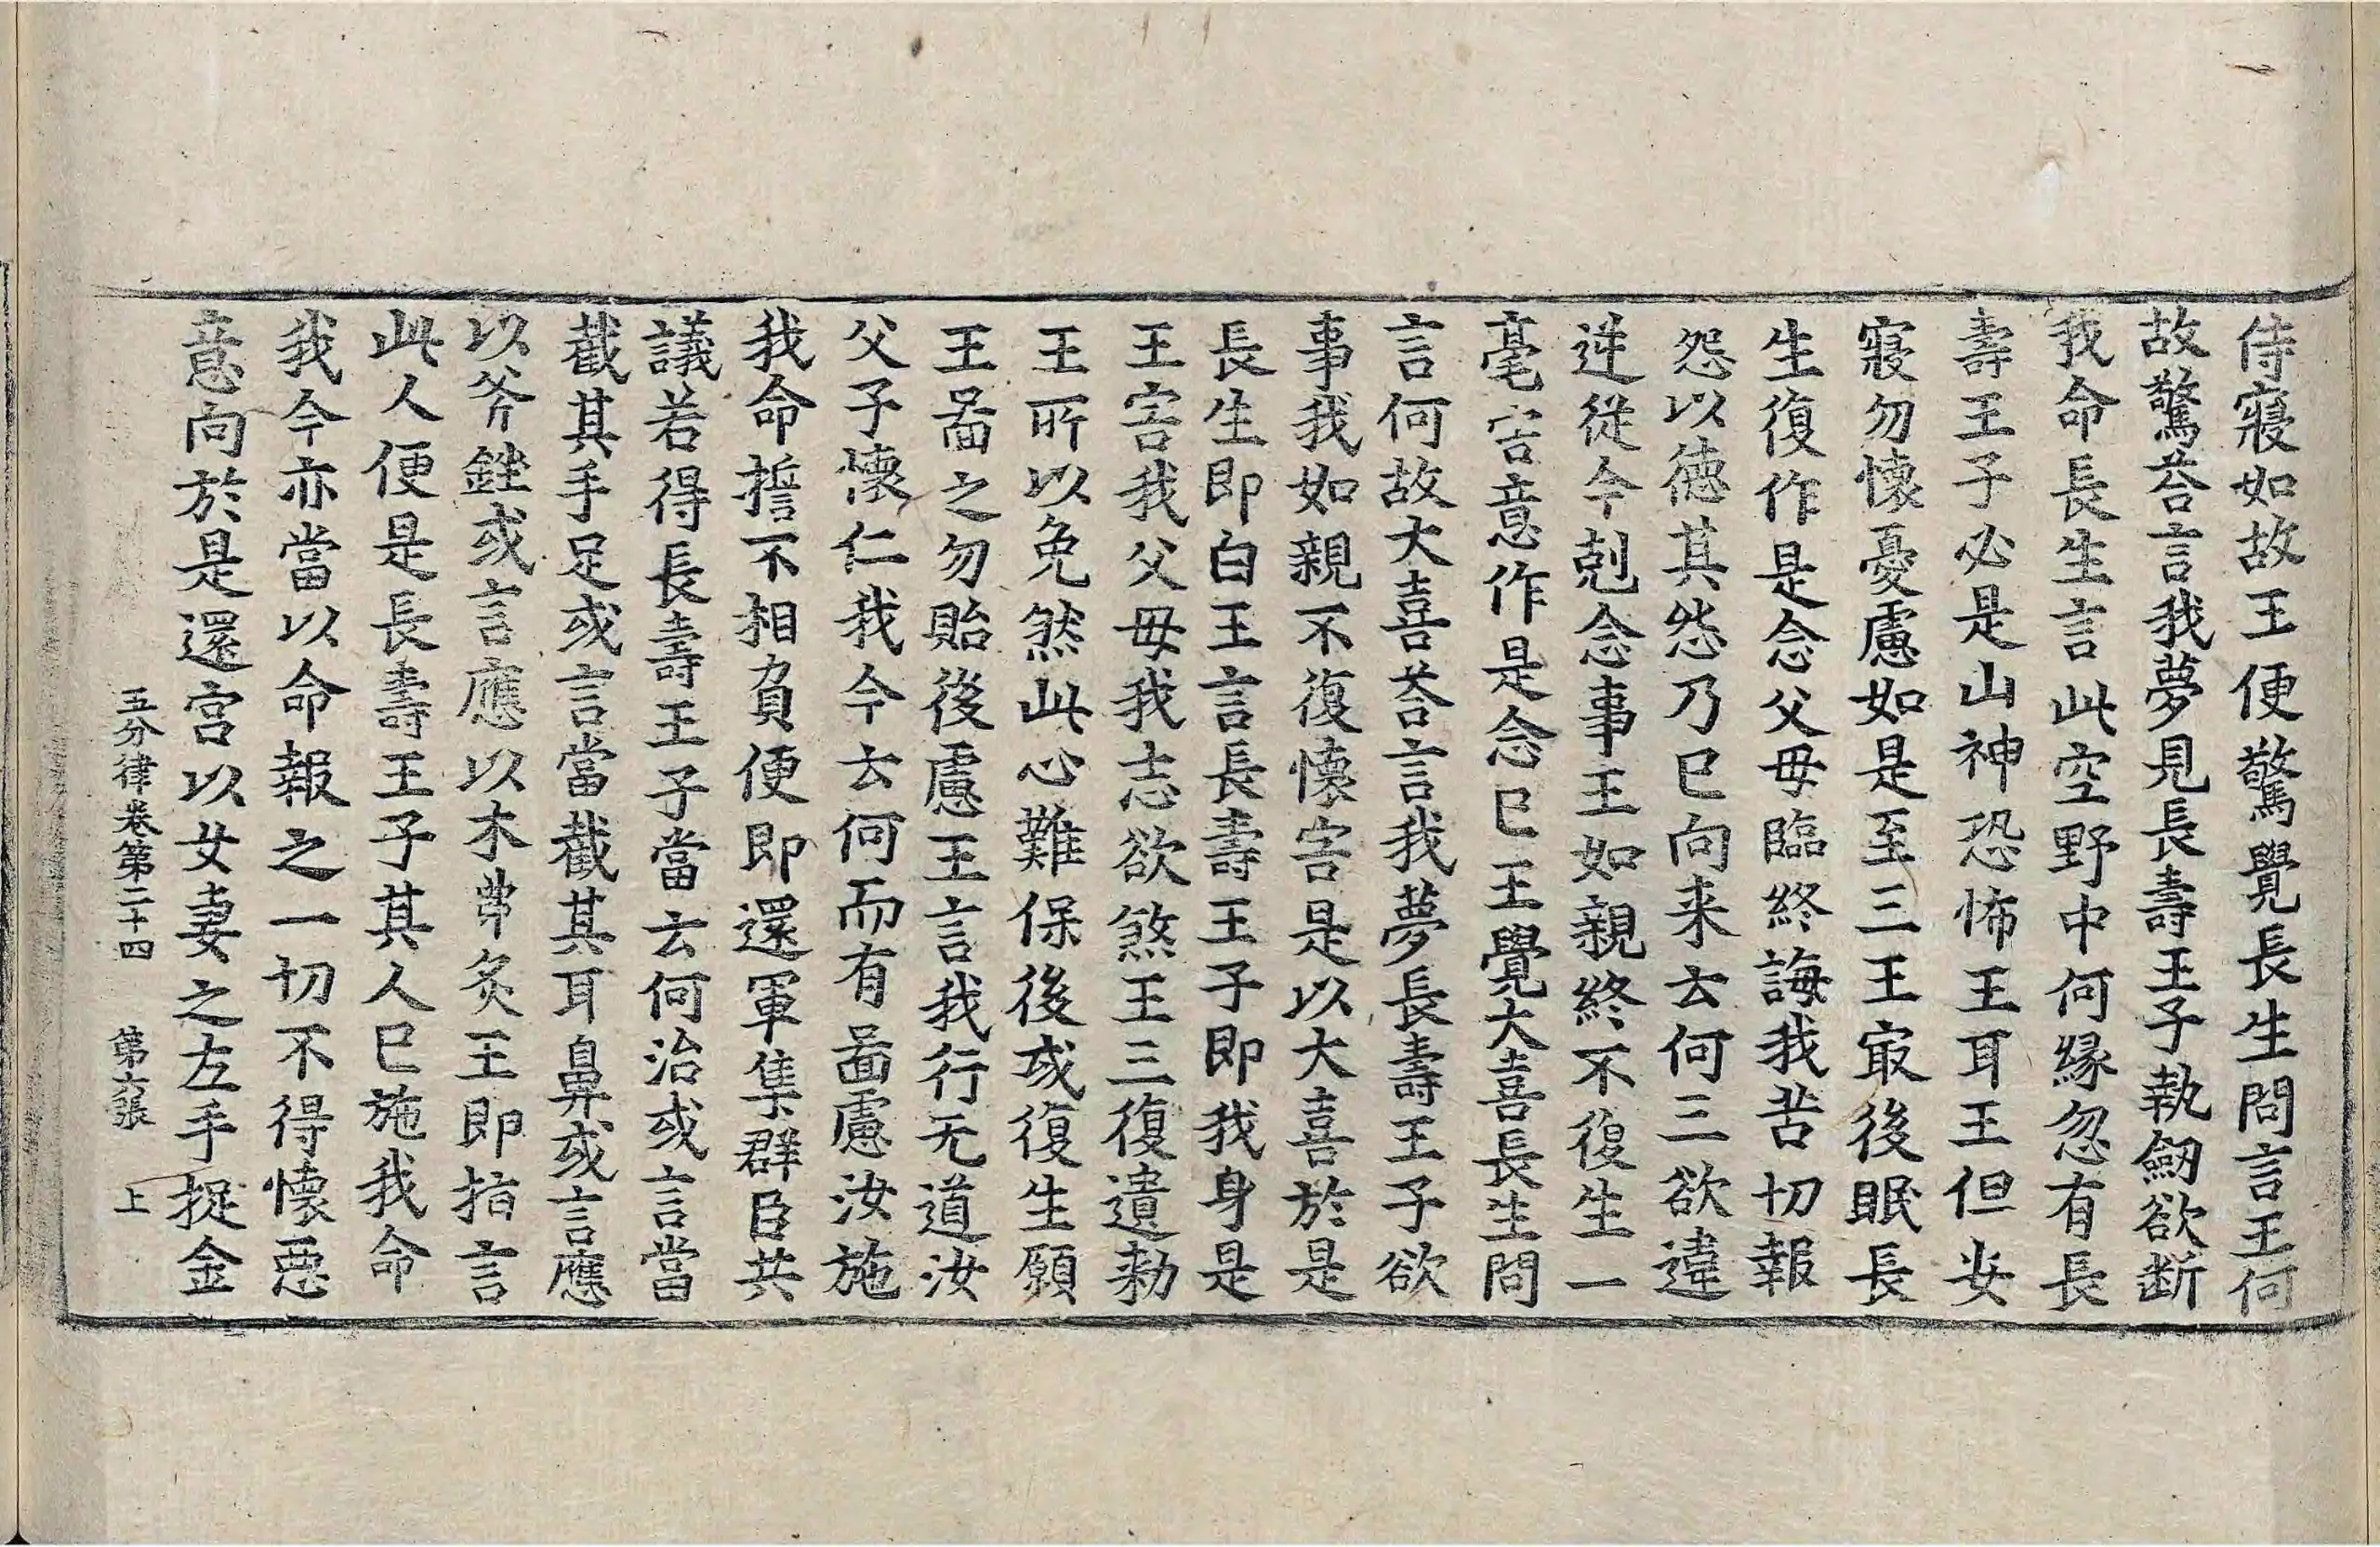 侍寢如故王便驚覺長生問言王何
故驚荅言我夢見長壽王子執劒欲断
我命長生言此空野中何縁忽有長
壽王子必是山神恐怖王耳王但安
寢勿懷憂慮如是至三王㝡後眠長
生復作是念父母臨終誨我苦切報
怨以徳其怨乃已向来去何三欲違
逆從今剋念事王如親終不復生一
毫害意作是念已王覺大喜長生問
言何故大喜荅言我夢長壽王子欲
事我如親不復懷害是以大喜於是
長生即白王言長壽王子即我身是
王害我父母我志欲煞王三復遺勑
王所以免然此心難保後或復生願
王啚之勿貽後慮王言我行无道汝
父子懷仁我今去何而有啚慮汝施
我命擔不相負便即還軍集群臣共
議若得長壽王子當云何治或言當
截其手足或言當截其耳鼻或言應
以斧銼或言應以木弗炙王即指言
此人便是長壽王子其人已施我命
我今亦當以命報之一切不得懷惡
意向於是還宫以女妻之左手捉金
五分律卷第二十四 第六張 上